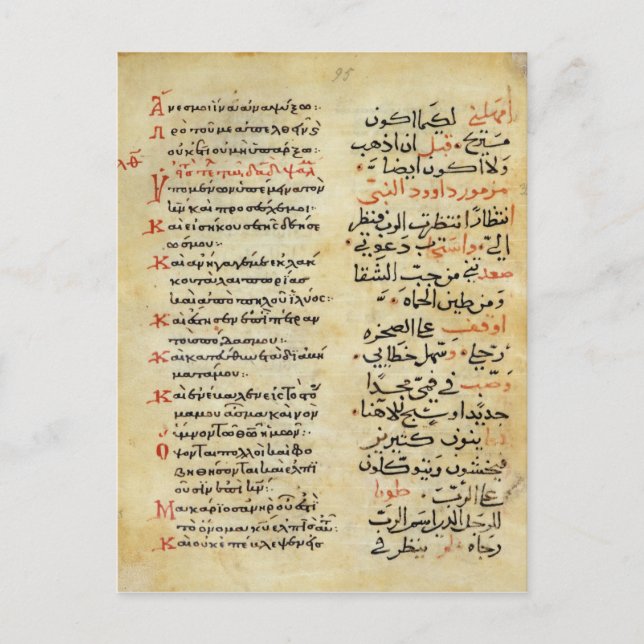 95
Ἄνες μοι ἵνα ἀναψύξω:·
Πρὸ τοῦ με ἀπελθεῖν καὶ
οὐκέτι οὐ μὴ ὑπάρξω:·
λθ
Ὑπομένων ὑπέμεινα τὸν
κν καὶ προσέσχε μοι
Καὶ εἰσήκουσεν τῆς δεήσε
ως μου:·
Καὶ ἀνήγαγέν με ἐκ λάκ
κου ταλαιπωρίας
καὶ ἀπὸ πηλοῦ ἰλύος:·
Καὶ ἔστησεν ἐπὶ πέτραν
τοὺς πόδας μου:·
Καὶ κατεύθυνε τὰ διαβή
ματά μου:·
Καὶ ἐνέβαλεν εἰς τὸ στό
μα μου ᾆσμα καινὸν
ὕμνον τῷ θῶ ἡμῶν:·
Ὄψονται πολλοὶ καὶ φο
βηθήσονται καὶ ἐλπι
οῦσιν ἐπὶ κν:·
Μακάριος ἀνὴρ οὗ ἐστι
τὸ ὄνομα κυ ἐλπὶς αὐτ
Καὶ οὐκ ἐπέβλεψεν εἰς
امهلني لكيما اكون
مستريح قبل ان اذهب
ولا اكون ايضا
مزمور داوود النبي
انتظارا انتظرت الرب فنظر
الي واستجب دعوتي
صعدني من جب الشقا
ومن طين الحماه
اوقف على الصخره
رجلي وسهل خطاي
وصب في فمي مجدا
جديدا وسبح لالاهنا
كثيرين
ويتوكلون
على الرب طوبا
للرجل الدي اسم الرب
رجاه ولم ينظر في